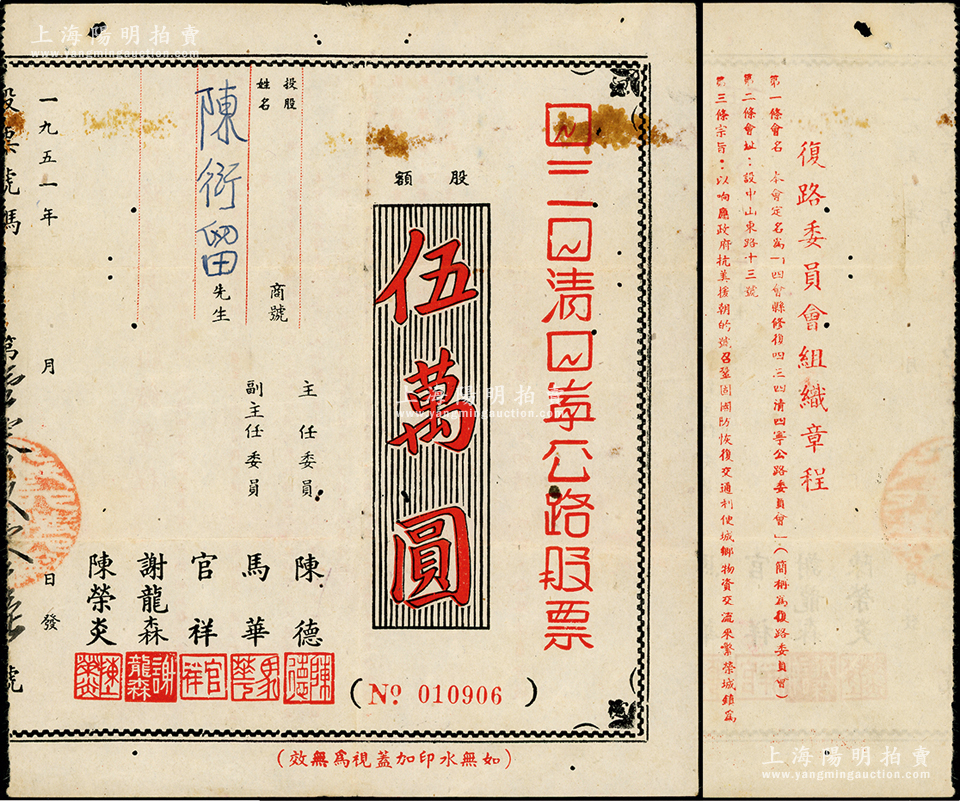 上海陽明拍賣
www.yangmingauction.com
四三—四清四寧公路股票
股額
伍萬圓
(No. 010906)
投股
姓名
陳衍留
商號
先生
主任委員
副主任委員
陳德
馬華
官祥
謝龍森
陳榮炎
陳德
馬華
官祥
謝龍森
陳榮炎
一九五一年 月 日發
股票號碼
第
號
(如無水印加蓋視爲無效)
上海陽明拍賣
www.yangmingauction.com
復路委員會組織章程
第一條會名 本會定名為「四會縣修復四三四清四寧公路委員會」(簡稱為復路委員會)
第二條會址:設中山東路十三號
第三條宗旨:以响應政府抗美援朝的號召鞏固國防恢復交通利使城鄉物資交流來繁榮城鎮爲
上海陽明拍賣
www.yangmingauction.com